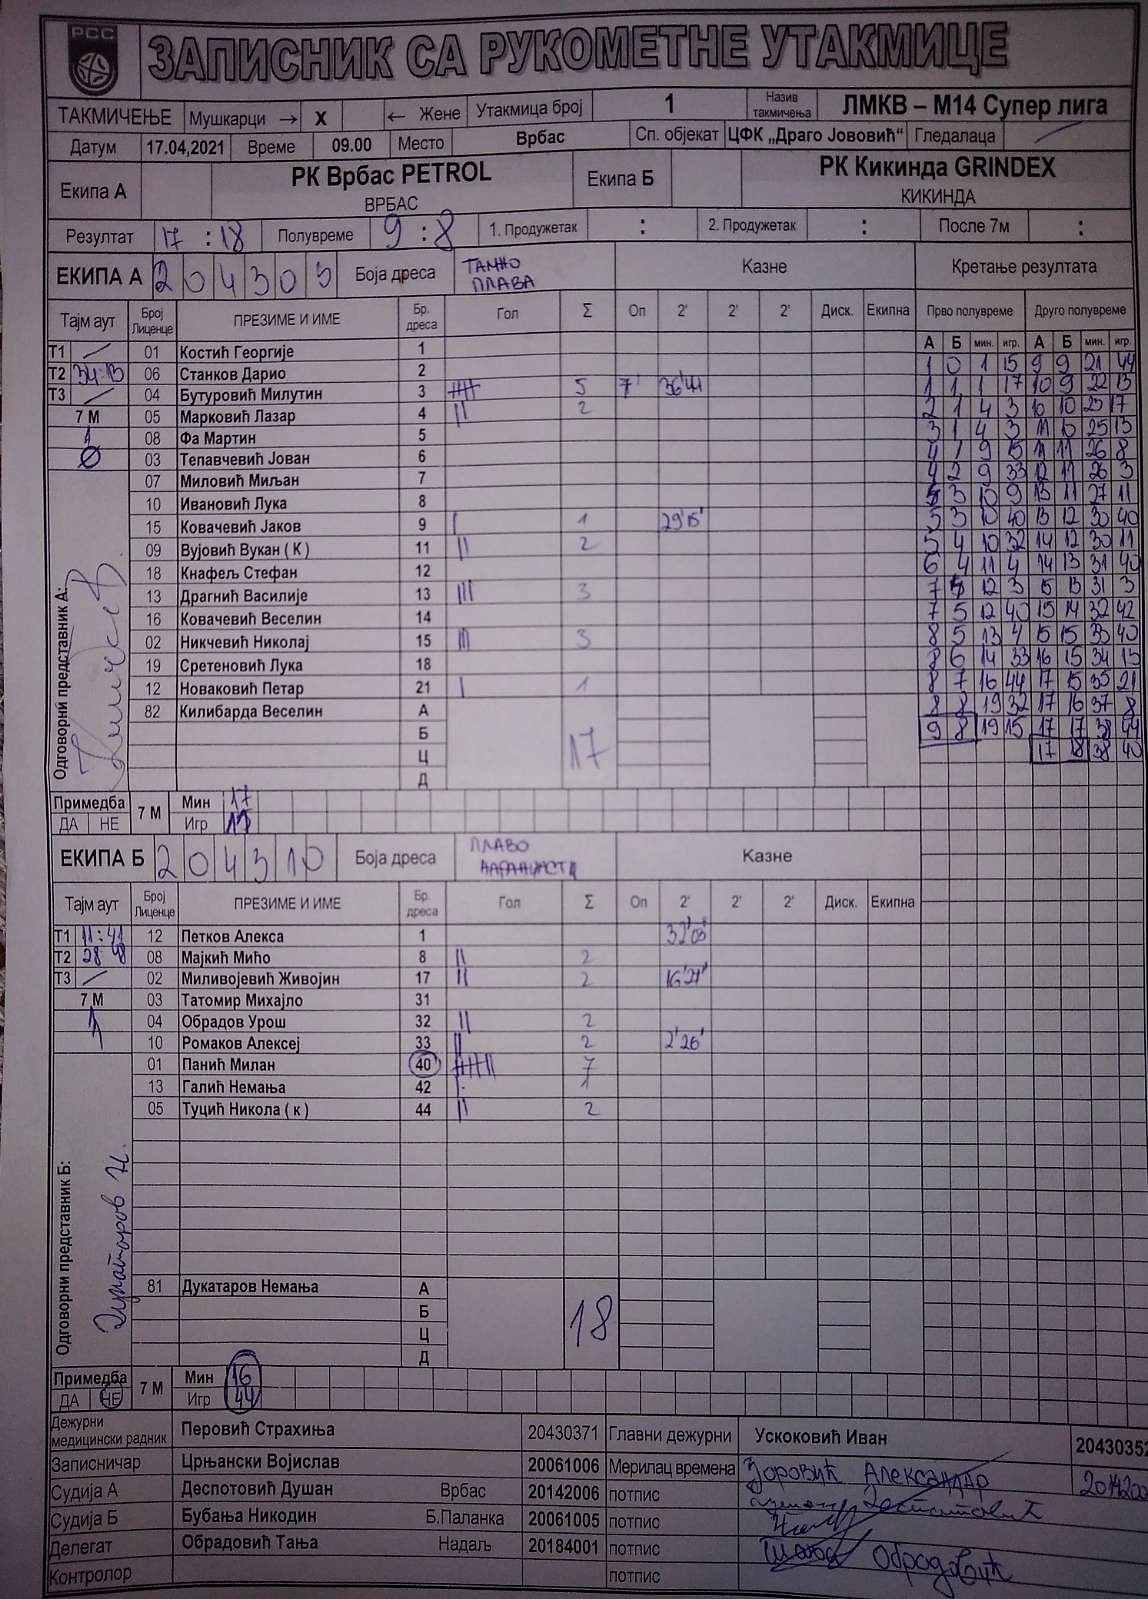 РСС
ЗАПИСНИК СА РУКОМЕТНЕ УТАКМИЦЕ
ТАКМИЧЕЊЕ Мушкарци → X ← Жене Утакмица број 1 Назив такмичења ЛМКВ – М14 Супер лига
Датум 17.04,2021 Време 09.00 Место Врбас Сп. објекат ЦФК „Драго Јововић“ Гледалаца
Екипа А РК Врбас PETROL Екипа Б РК Кикинда GRINDEX
ВРБАС КИКИНДА
Резултат 17 : 18 Полувреме 9 : 8 1. Продужетак : 2. Продужетак : После 7м :
ЕКИПА А 204303 Боја дреса ТАМНО ПЛАВА Казне Кретање резултата
Тајм аут Број Лиценце ПРЕЗИМЕ И ИМЕ Бр. дреса Гол Σ Оп 2' 2' 2' Диск. Екипна Прво полувреме Друго полувреме
А Б мин. игр. А Б мин. игр.
Т1 01 Костић Георгије 1 1 0 1 15 9 9 21 44
Т2 06 Станков Дарио 2 1 1 1 17 10 9 22 13
Т3 04 Бутуровић Милутин 3 5 7' 36'44 2 1 4 3 10 10 25 17
7 М 05 Марковић Лазар 4 2 3 1 4 3 11 10 25 13
08 Фа Мартин 5 4 1 9 15 11 11 26 8
03 Тепавчевић Јован 6 4 2 9 33 12 11 26 3
07 Миловић Миљан 7 5 3 10 9 13 11 27 11
10 Ивановић Лука 8 5 3 10 40 13 12 30 40
15 Ковачевић Јаков 9 1 29'15' 5 4 10 32 14 12 30 11
09 Вујовић Вукан ( К ) 11 2 6 4 11 4 14 13 31 40
18 Кнафељ Стефан 12 7 5 12 3 15 13 31 3
13 Драгнић Василије 13 3 7 5 12 40 15 14 32 42
16 Ковачевић Веселин 14 8 5 13 4 15 15 33 40
02 Никчевић Николај 15 3 8 6 14 33 16 15 34 15
19 Сретеновић Лука 18 8 7 16 44 17 15 35 21
12 Новаковић Петар 21 1 8 8 19 32 17 16 37 8
82 Килибарда Веселин А 9 8 19 15 17 17 38 44
Б 17 17 18 38 40
Ц
Д
Одговорни представник А:
Примедба 7 М Мин 17
ДА НЕ Игр
ЕКИПА Б 204310 Боја дреса ПЛАВО Казне
Тајм аут Број Лиценце ПРЕЗИМЕ И ИМЕ Бр. дреса Гол Σ Оп 2' 2' 2' Диск. Екипна
Т1 11:41 12 Петков Алекса 1 32'03'
Т2 28 48 08 Мајкић Мићо 8 2
Т3 02 Миливојевић Живојин 17 2 16'27'
7 М 03 Татомир Михајло 31
04 Обрадов Урош 32 2
10 Ромаков Алексеј 33 2 2'26'
01 Панић Милан 40 7
13 Галић Немања 42 1
05 Туцић Никола ( к ) 44 2
81 Дукатаров Немања А
Б 18
Ц
Д
Одговорни представник Б: Дукатаров Н.
Примедба 7 М Мин 16
ДА НЕ Игр 44
Дежурни медицински радник Перовић Страхиња 20430371 Главни дежурни Ускоковић Иван 20430352
Записничар Црњански Војислав 20061006 Мерилац времена Зоровић Александар
Судија А Деспотовић Душан Врбас 20142006 потпис
Судија Б Бубања Никодин Б.Паланка 20061005 потпис
Делегат Обрадовић Тања Надаљ 20184001 потпис Обрадовић
Контролор потпис